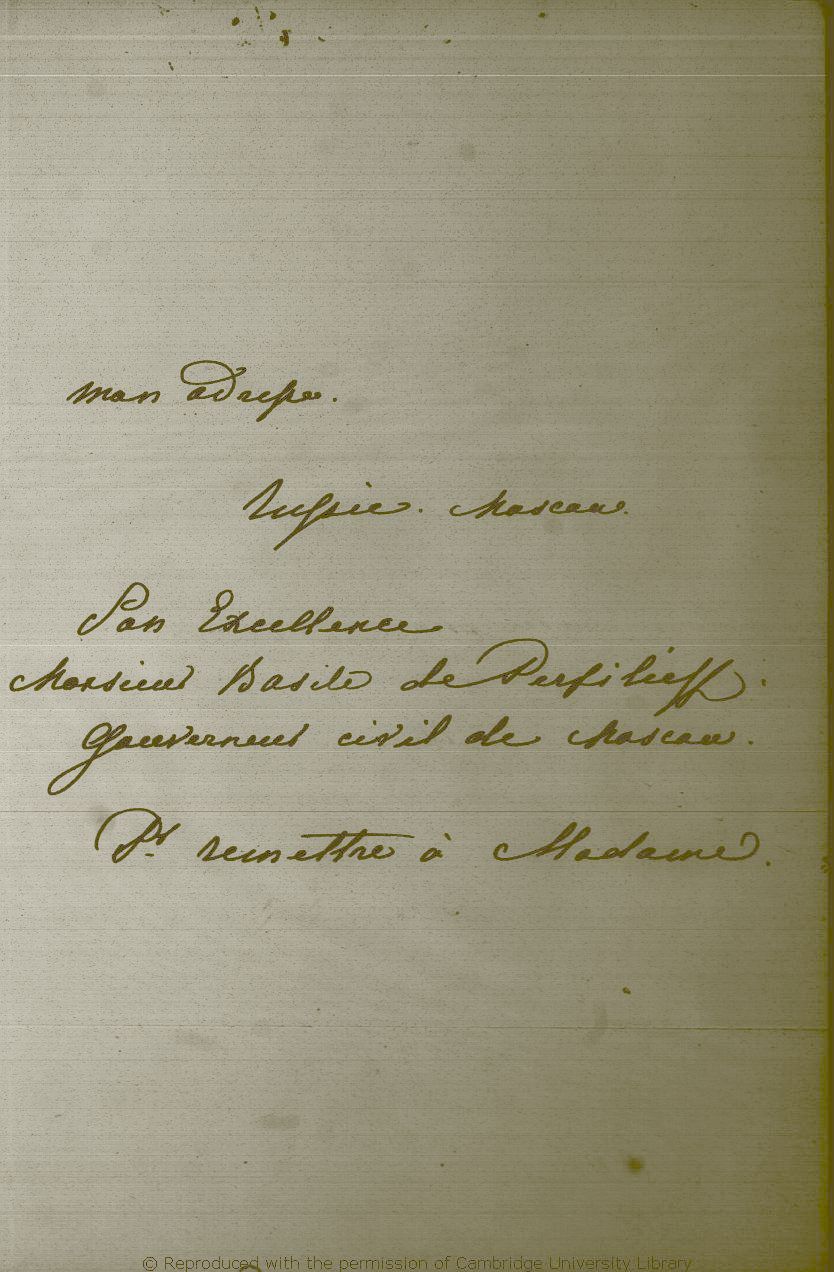 mon adresse.
Russie. Moscou.
Son Excellence
Monsieur Basile de Perfilieff.
Gouverneur civil de Moscou.
Pr remettre à Madame.
© Reproduced with the permission of Cambridge University Library